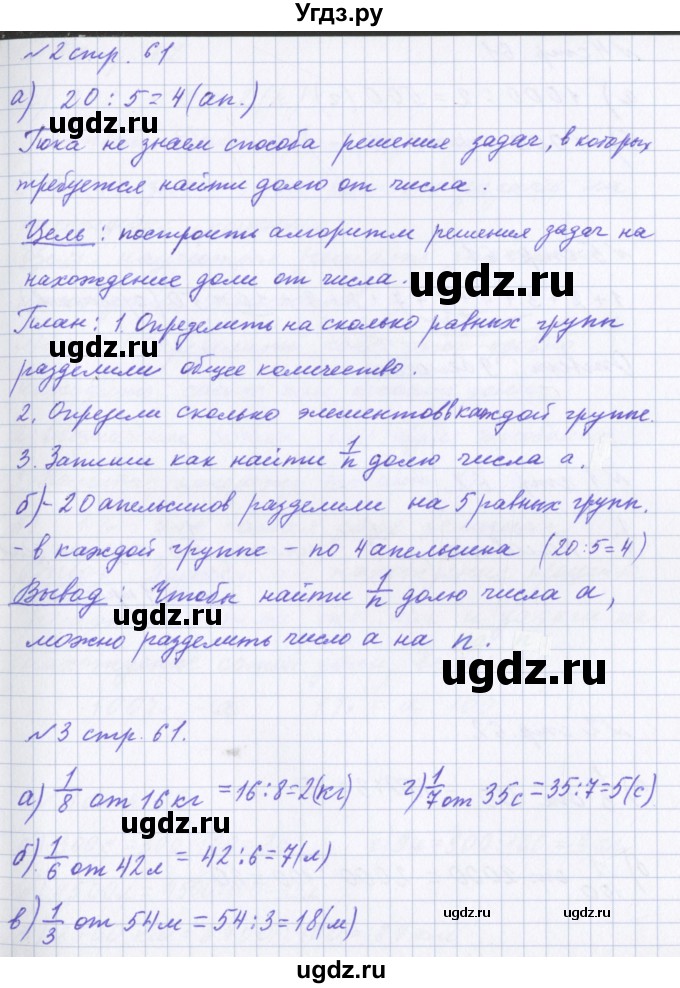 Угдз.ру
№2 стр. 61
а) 20 : 5 = 4 (ап.)
ugdz.ru
Пока не знаем способа решения задач, в которых
требуется найти долю от числа.
Цель: построить алгоритм решения задач на
нахождение доли от числа.
ugdz.ru
План: 1. Определить на сколько равных групп
ugdz.ru
разделили общее количество.
2. Определи сколько элементов в каждой группе.
3. Запиши как найти 1/n долю числа а.
б) - 20 апельсинов разделили на 5 равных групп.
- в каждой группе - по 4 апельсина (20:5=4)
Вывод: Чтобы найти 1/n долю числа а,
можно разделить число а на n.
ugdz.ru
№3 стр. 61.
а) 1/8 от 16 кг = 16:8=2(кг) г) 1/7 от 35с = 35:7=5(с)
ugdz.ru
б) 1/6 от 42л = 42:6=7(л)
в) 1/3 от 54м = 54:3=18(м)
ugdz.ru ugdz.ru
ugdz.ru